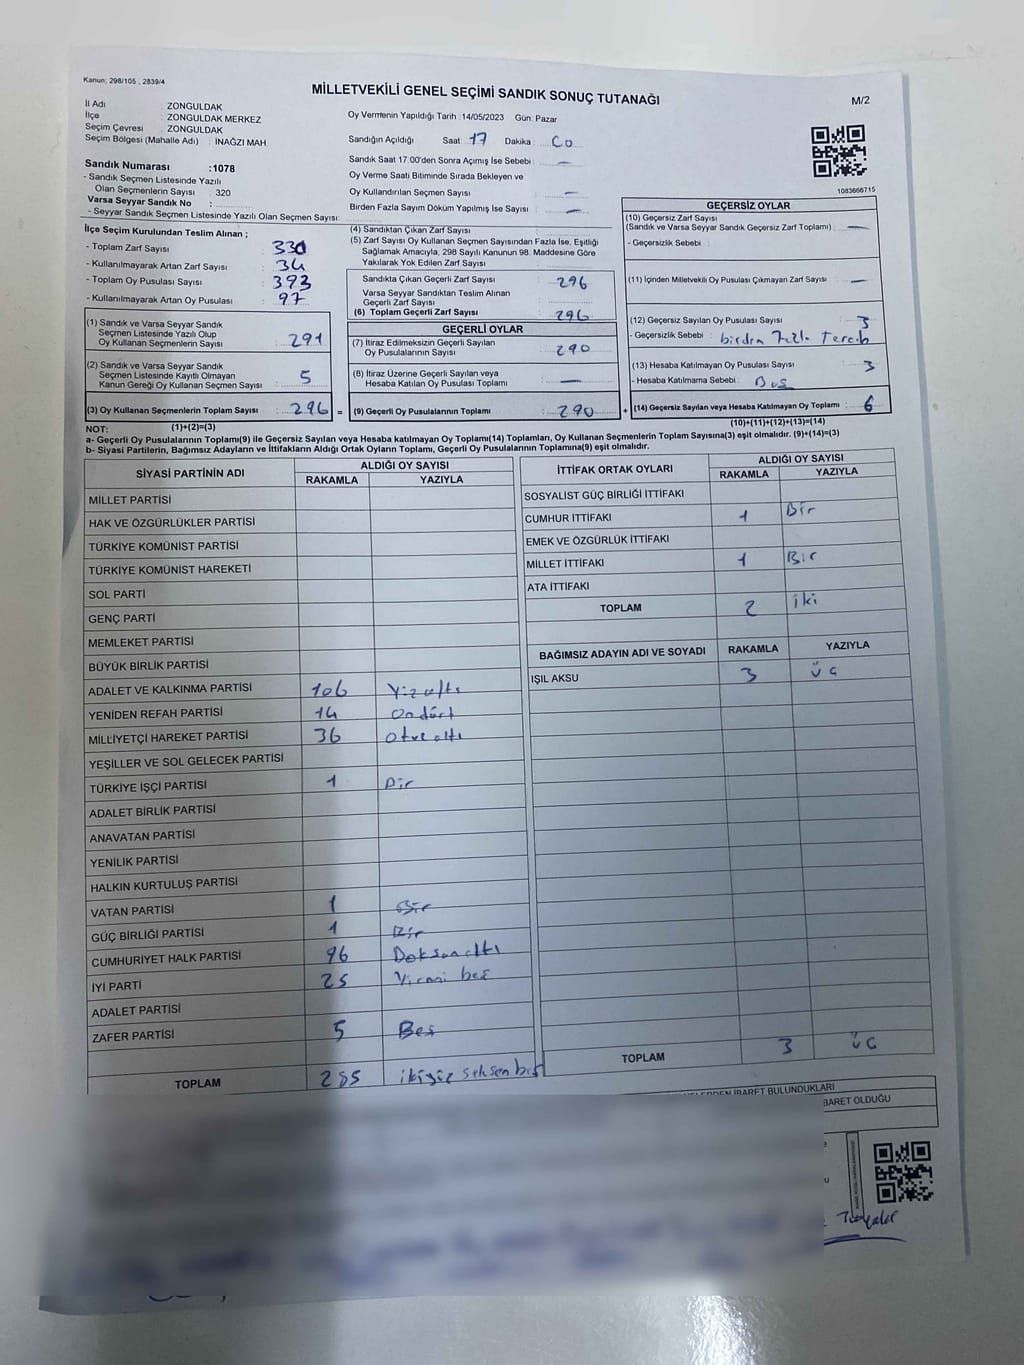 Kanun; 298/105 , 2839/4
MİLLETVEKİLİ GENEL SEÇİMİ SANDIK SONUÇ TUTANAĞI
M/2
İl Adı : ZONGULDAK
İlçe : ZONGULDAK MERKEZ
Seçim Çevresi : ZONGULDAK
Seçim Bölgesi (Mahalle Adı) : İNAĞZI MAH
Oy Vermenin Yapıldığı Tarih :14/05/2023 Gün: Pazar
Sandığın Açıldığı Saat: 17 Dakika:
Sandık Saat 17:00'den Sonra Açımış İse Sebebi : —
Oy Verme Saati Bitiminde Sırada Bekleyen ve
Oy Kullandırılan Seçmen Sayısı : —
Birden Fazla Sayım Döküm Yapılmış İse Sayısı : —
1083666715
Sandık Numarası :1078
- Sandık Seçmen Listesinde Yazılı
Olan Seçmenlerin Sayısı : 320
Varsa Seyyar Sandık No :
- Seyyar Sandık Seçmen Listesinde Yazılı Olan Seçmen Sayısı:
İlçe Seçim Kurulundan Teslim Alınan ;
- Toplam Zarf Sayısı : 330
- Kullanılmayarak Artan Zarf Sayısı : 34
- Toplam Oy Pusulası Sayısı : 393
- Kullanılmayarak Artan Oy Pusulası : 97
(1) Sandık ve Varsa Seyyar Sandık
Seçmen Listesinde Yazılı Olup
Oy Kullanan Seçmenlerin Sayısı : 291
(2) Sandık ve Varsa Seyyar Sandık
Seçmen Listesinde Kayıtlı Olmayan
Kanun Gereği Oy Kullanan Seçmen Sayısı : 5
(3) Oy Kullanan Seçmenlerin Toplam Sayısı : 296 =
(1)+(2)=(3)
(4) Sandıktan Çıkan Zarf Sayısı :
(5) Zarf Sayısı Oy Kullanan Seçmen Sayısından Fazla İse, Eşitliği
Sağlamak Amacıyla, 298 Sayılı Kanunun 98. Maddesine Göre
Yakılarak Yok Edilen Zarf Sayısı :
Sandıkta Çıkan Geçerli Zarf Sayısı : 296
Varsa Seyyar Sandıktan Teslim Alınan
Geçerli Zarf Sayısı :
(6) Toplam Geçerli Zarf Sayısı : 296
GEÇERLİ OYLAR
(7) İtiraz Edilmeksizin Geçerli Sayılan
Oy Pusulalarının Sayısı : 290
(8) İtiraz Üzerine Geçerli Sayılan veya
Hesaba Katılan Oy Pusulası Toplamı : —
(9) Geçerli Oy Pusulalarının Toplamı : 290 +
GEÇERSİZ OYLAR
(10) Geçersiz Zarf Sayısı
(Sandık ve Varsa Seyyar Sandık Geçersiz Zarf Toplamı) : —
- Geçersizlik Sebebi :
(11) İçinden Milletvekili Oy Pusulası Çıkmayan Zarf Sayısı : —
(12) Geçersiz Sayılan Oy Pusulası Sayısı : 3
- Geçersizlik Sebebi : birden fazla Tercih
(13) Hesaba Katılmayan Oy Pusulası Sayısı : 3
- Hesaba Katılmama Sebebi : Boş
(14) Geçersiz Sayılan veya Hesaba Katılmayan Oy Toplamı : 6
(10)+(11)+(12)+(13)=(14)
NOT:
a- Geçerli Oy Pusulalarının Toplamı(9) ile Geçersiz Sayılan veya Hesaba katılmayan Oy Toplamı(14) Toplamları, Oy Kullanan Seçmenlerin Toplam Sayısına(3) eşit olmalıdır. (9)+(14)=(3)
b- Siyasi Partilerin, Bağımsız Adayların ve İttifakların Aldığı Ortak Oyların Toplamı, Geçerli Oy Pusulalarının Toplamına(9) eşit olmalıdır.
SİYASİ PARTİNİN ADI
ALDIĞI OY SAYISI
RAKAMLA YAZIYLA
MİLLET PARTİSİ
HAK VE ÖZGÜRLÜKLER PARTİSİ
TÜRKİYE KOMÜNİST PARTİSİ
TÜRKİYE KOMÜNİST HAREKETİ
SOL PARTİ
GENÇ PARTİ
MEMLEKET PARTİSİ
BÜYÜK BİRLİK PARTİSİ
ADALET VE KALKINMA PARTİSİ 106 Yüzaltı
YENİDEN REFAH PARTİSİ 14 Ondört
MİLLİYETÇİ HAREKET PARTİSİ 36 otuzaltı
YEŞİLLER VE SOL GELECEK PARTİSİ
TÜRKİYE İŞÇİ PARTİSİ 1 Bir
ADALET BİRLİK PARTİSİ
ANAVATAN PARTİSİ
YENİLİK PARTİSİ
HALKIN KURTULUŞ PARTİSİ
VATAN PARTİSİ 1 Bir
GÜÇ BİRLİĞİ PARTİSİ 1 Bir
CUMHURİYET HALK PARTİSİ 96 Doksanaltı
İYİ PARTİ 25 Yirmi beş
ADALET PARTİSİ
ZAFER PARTİSİ 5 Beş
TOPLAM 285 ikiyüz seksen beş
İTTİFAK ORTAK OYLARI
ALDIĞI OY SAYISI
RAKAMLA YAZIYLA
SOSYALİST GÜÇ BİRLİĞİ İTTİFAKI
CUMHUR İTTİFAKI 1 Bir
EMEK VE ÖZGÜRLÜK İTTİFAKI
MİLLET İTTİFAKI 1 Bir
ATA İTTİFAKI
TOPLAM 2 iki
BAĞIMSIZ ADAYIN ADI VE SOYADI RAKAMLA YAZIYLA
IŞIL AKSU 3 üç
TOPLAM 3 üç
İBARET BULUNDUKLARI
BARET OLDUĞU